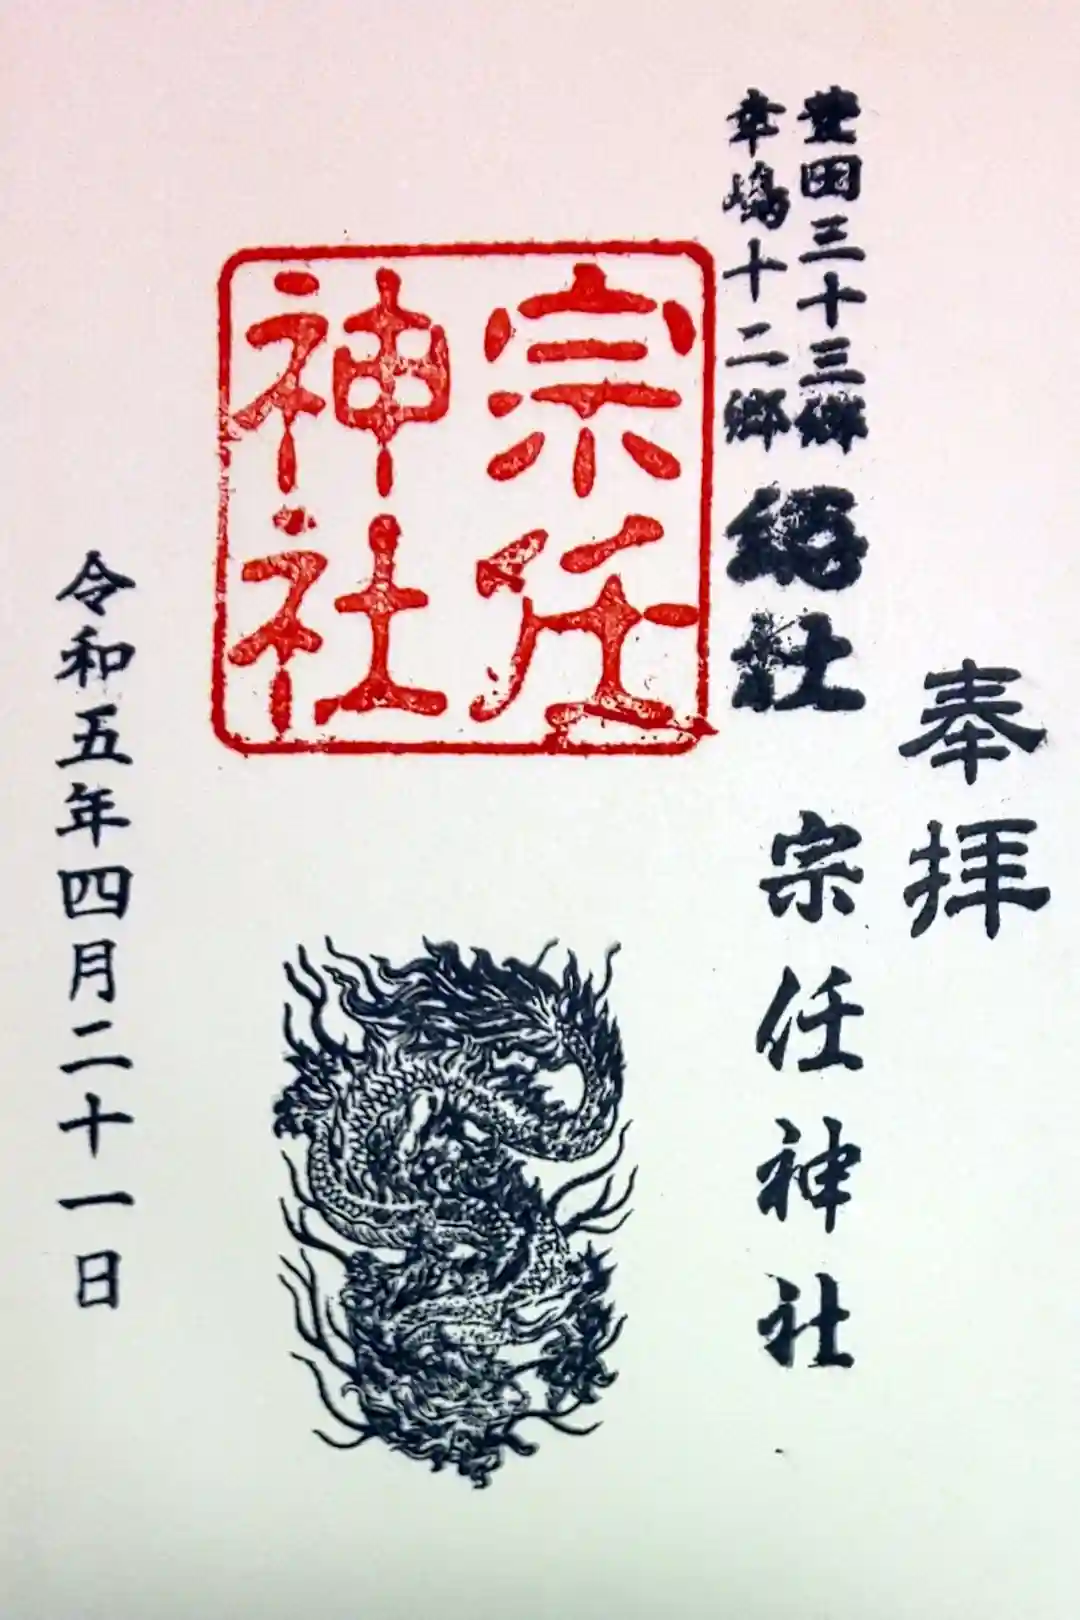 奉拝
豊田三十三郷
幸嶋十二郷
総社
宗任神社
宗任
神社
令和五年四月二十一日